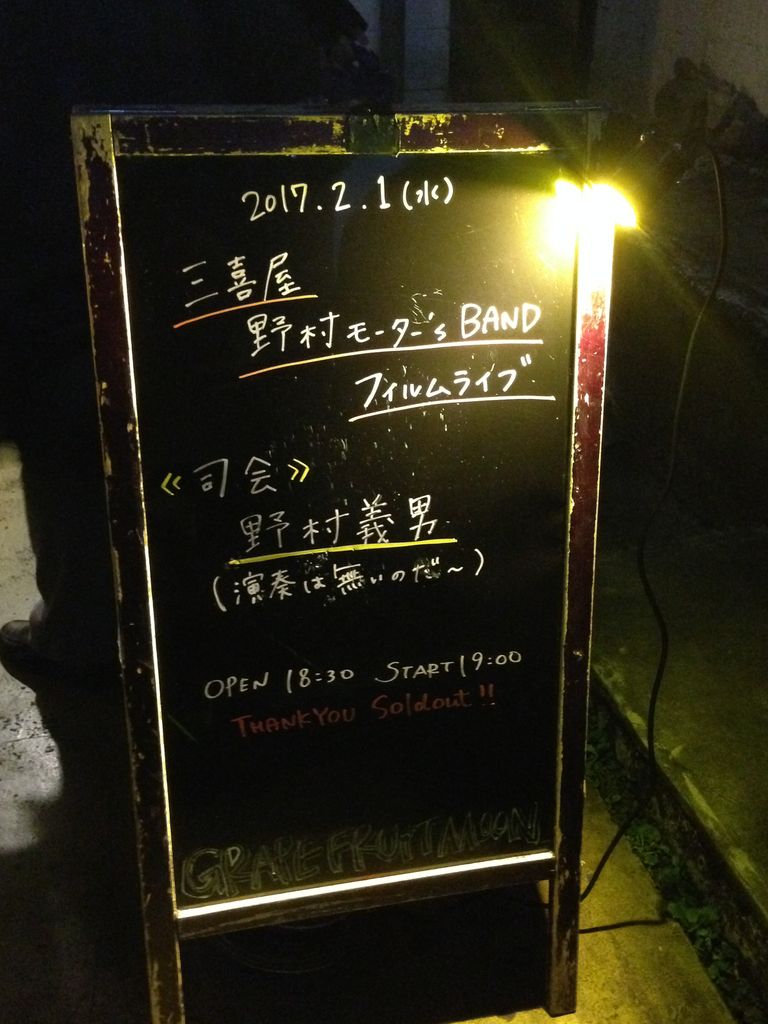 2017.2.1(水)
三喜屋
野村モーター's BAND
フィルムライブ
《司会》
野村義男
(演奏は無いのだ〜)
OPEN 18:30 START 19:00
THANKYOU Soldout!!
GRAPEFRUITMOON